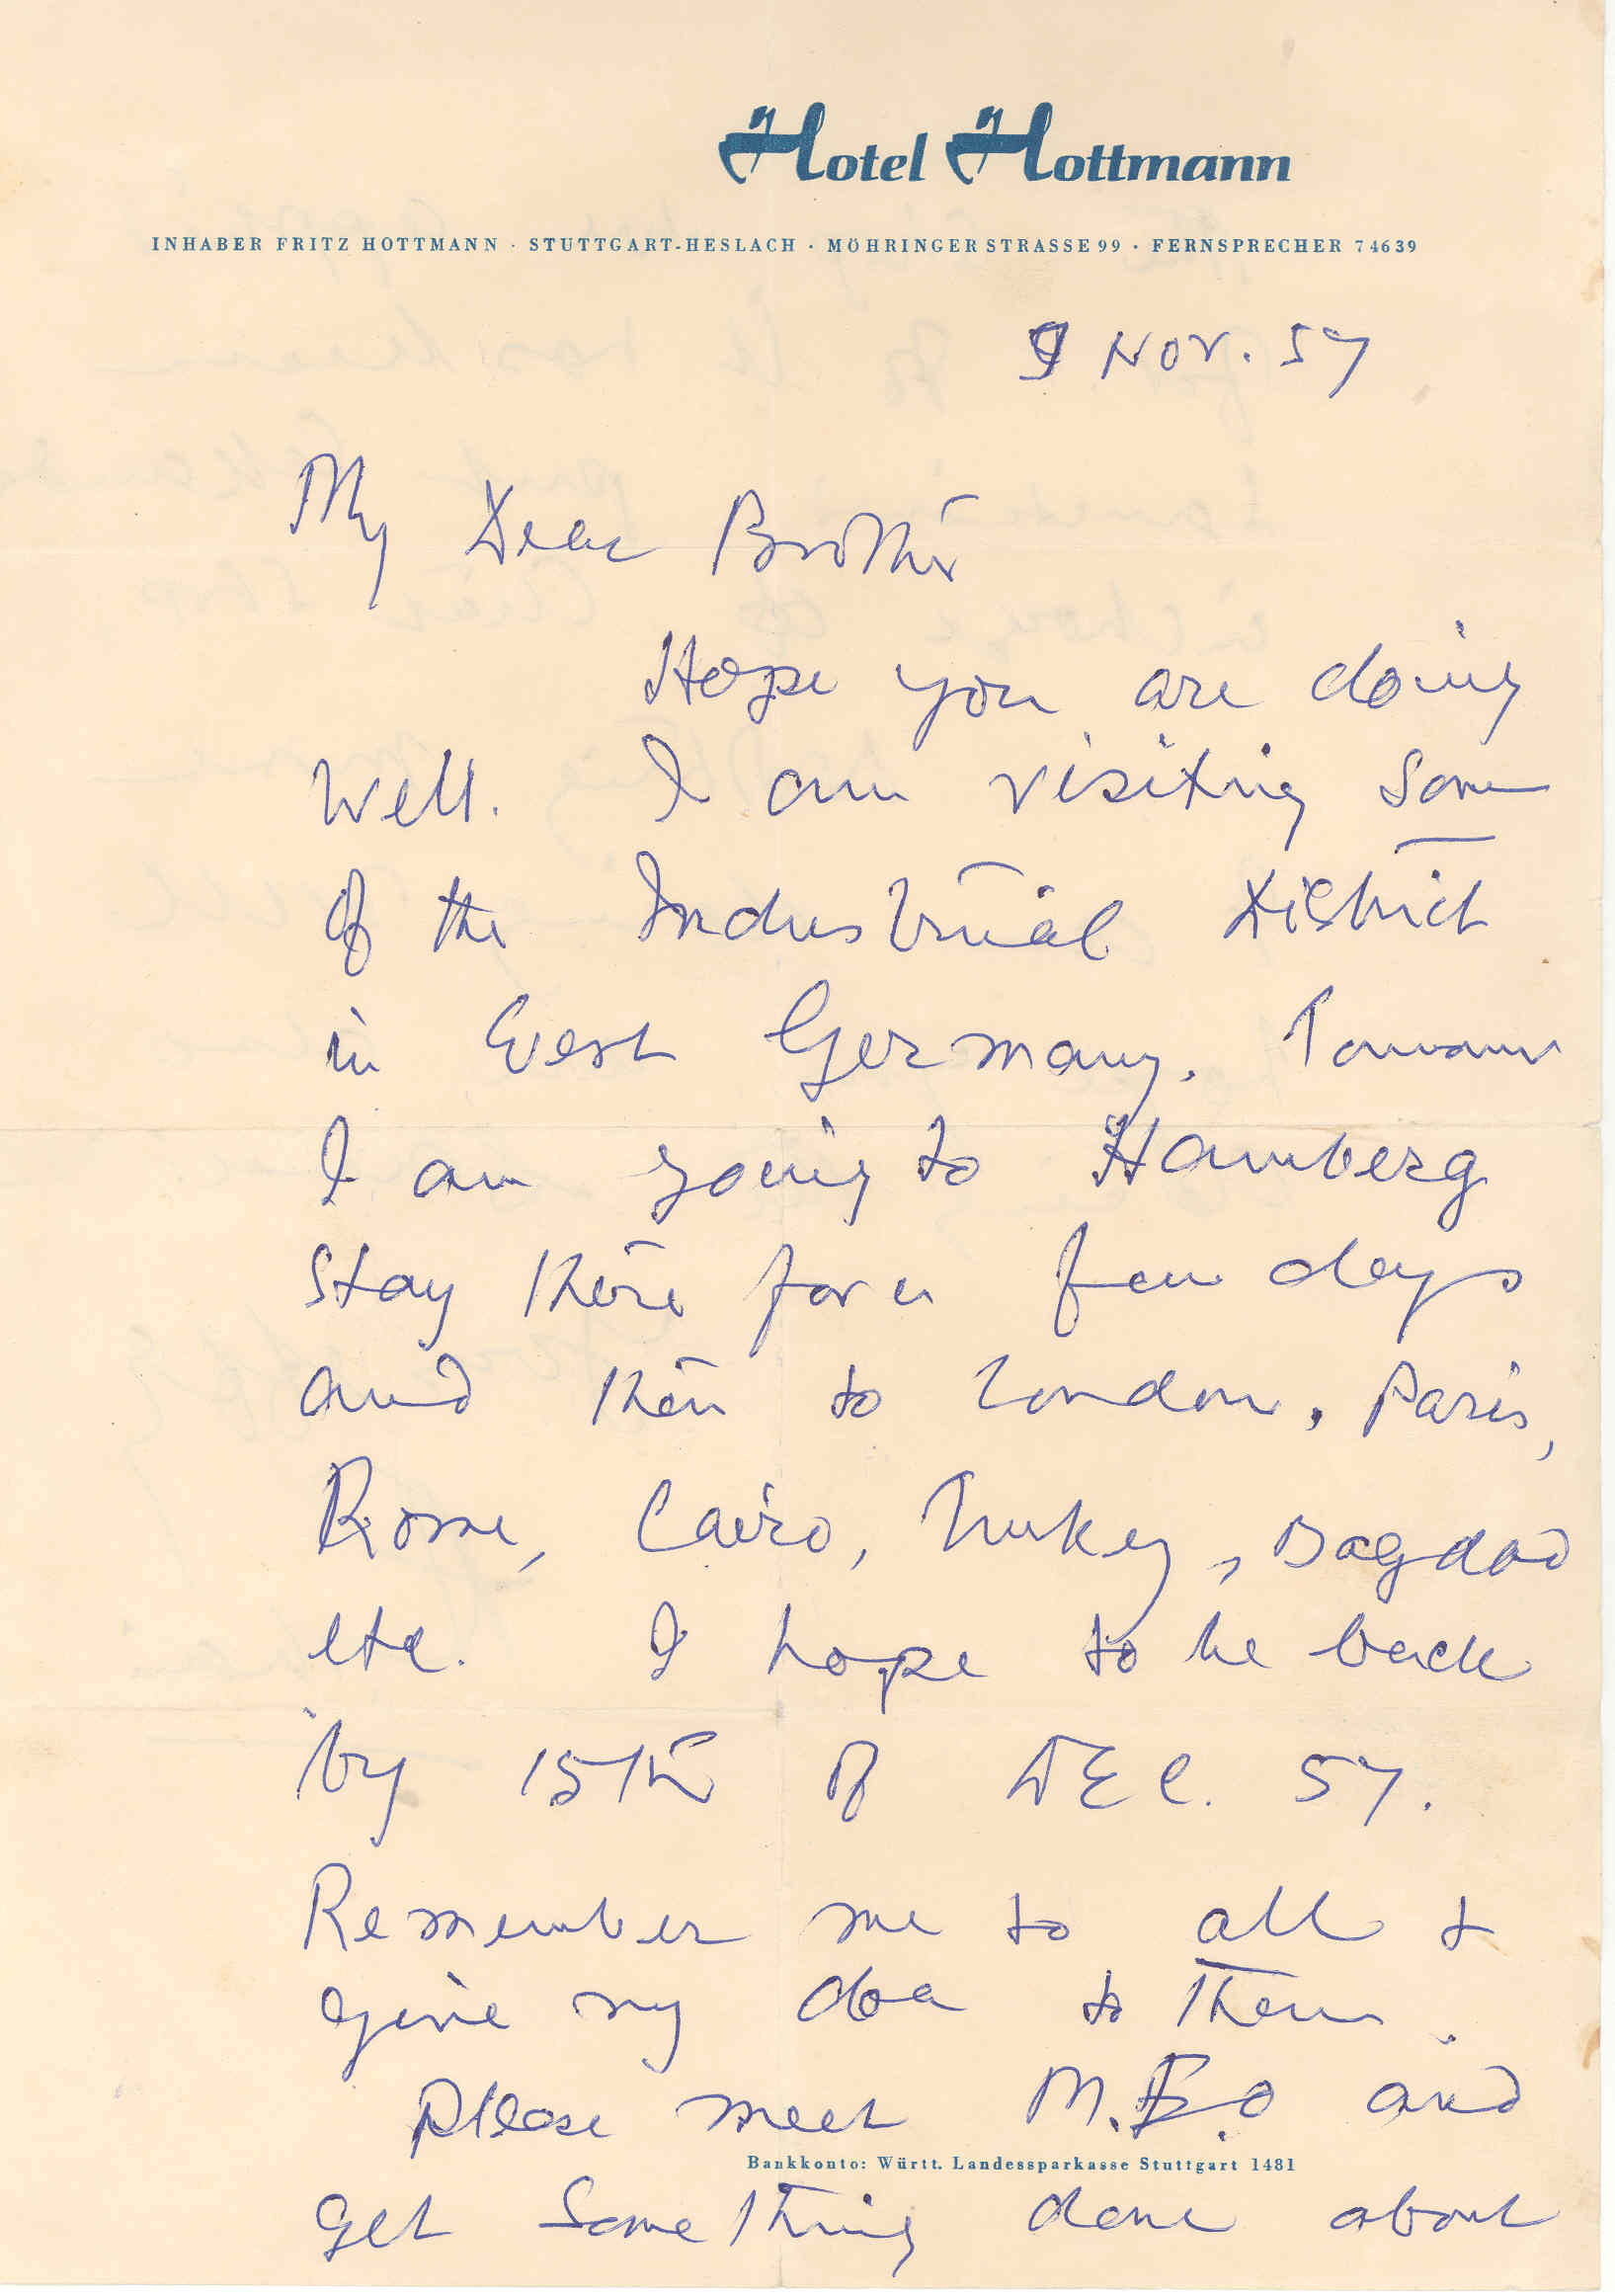 Hotel Hottmann
INHABER FRITZ HOTTMANN · STUTTGART-HESLACH · MÖHRINGER STRASSE 99 · FERNSPRECHER 74639
9 Nov. 57
My Dear Brother
Hope you are doing
well. I am visiting some
of the Industrial District
in West Germany. Tomorrow
I am going to Hamberg
stay there for a few days
and then to London, Paris,
Rome, Cairo, Turkey, Bagdad
etc. I hope to be back
by 15th of DEC. 57.
Remember me to all &
give my doa to them.
Please meet M.E.O and
Bankkonto: Württ. Landessparkasse Stuttgart 1481
get something done about